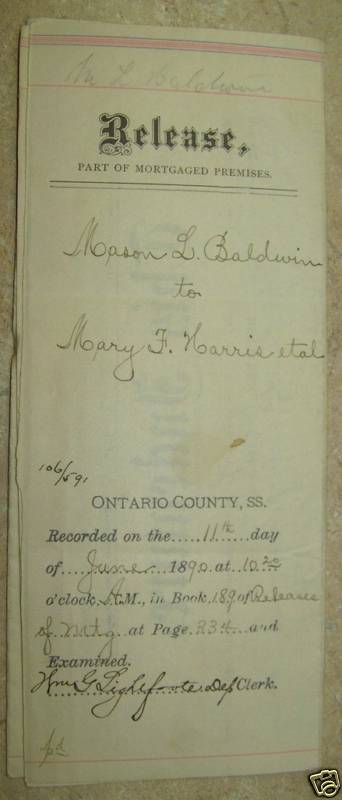 M L Baldwin
Release,
PART OF MORTGAGED PREMISES.
Mason L. Baldwin
to
Mary F. Harris et al
106/591
ONTARIO COUNTY, SS.
Recorded on the 11th day
of June 1890 at 10 20
o'clock A.M., in Book 189 of Releases
of Mtg at Page 234 and
Examined.
Wm G Lightfoote Dep Clerk.
pd